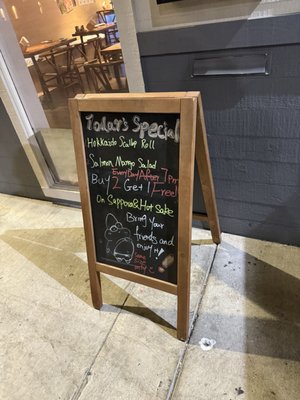 Today's Special
Hokkaido Scallop Roll
Salmon Mango Salad
Every Day After 7pm
Buy 2 Get 1 Free!
On Sapporo & Hot Sake
Bring your
friends and
enjoy it
Same